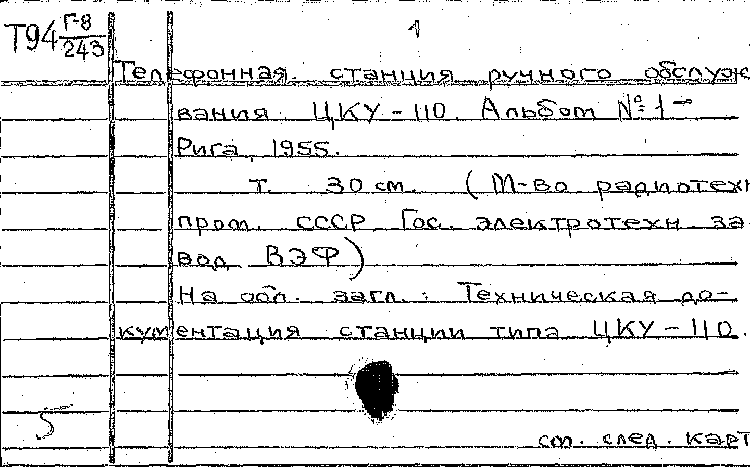 Т94 Г-8/243
1
Телефонная станция ручного обслуж
вания ЦКУ-110. Альбом №1-
Рига, 1955.
т. 30 см. (М-во радиотехн
пром. СССР Гос. электротехн за-
вод ВЭФ)
На обл. загл.: Техническая до-
кументация станции типа ЦКУ-110.
5
см. след. карт